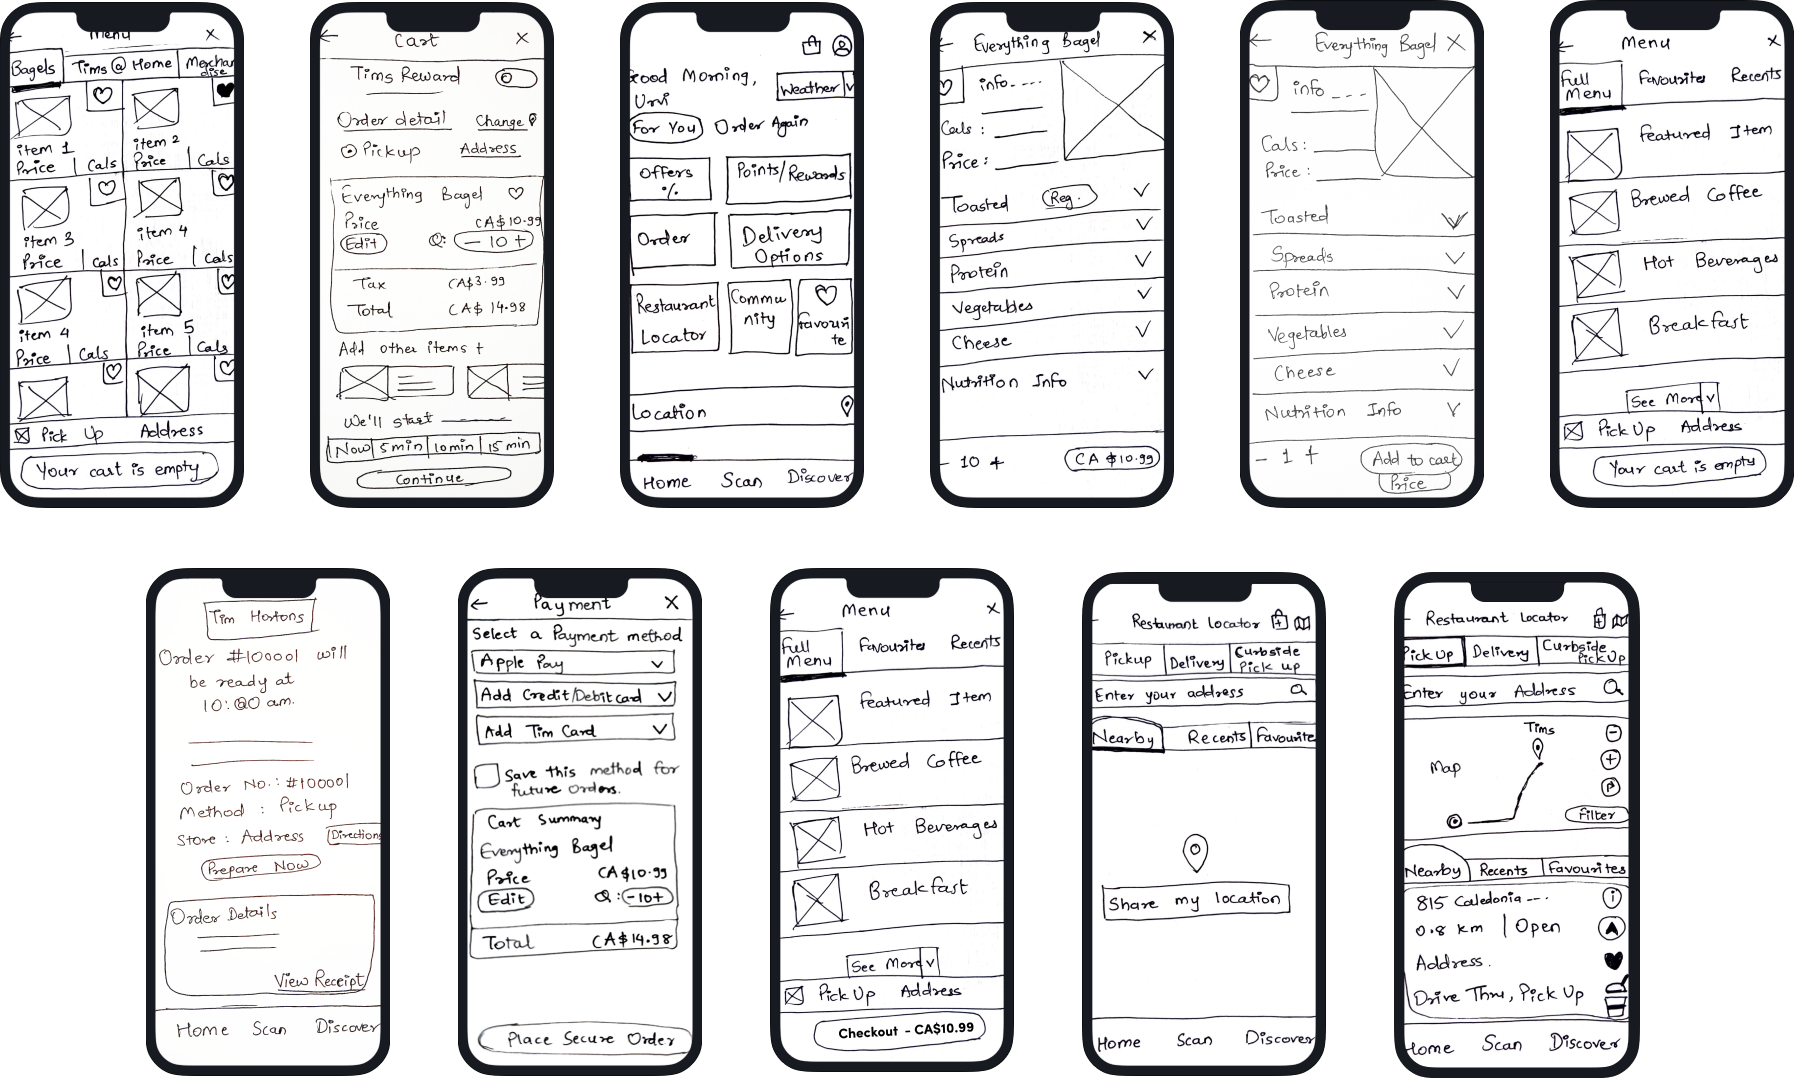 Menu
Bagels Tims @ Home Merchandise
item 1 item 2
Price Cals Price Cals
item 3 item 4
Price Cals Price Cals
item 4 item 5
Price Cals Price Cals
Pick Up Address
Your cart is empty
Cart
Tims Reward
Order detail Change
Pickup Address
Everything Bagel
Price CA$10.99
Edit Q: - 10 +
Tax CA$3.99
Total CA$ 14.98
Add other items +
We'll start
Now 5 min 10 min 15 min
Continue
Good Morning,
Urvi
Weather
For You Order Again
Offers
%
Points/Rewards
Order
Delivery
Options
Restaurant
Locator
Commu
nity
favouri
te
Location
Home Scan Discover
Everything Bagel
info----
Cals :
Price :
Toasted Reg.
Spreads
Protein
Vegetables
Cheese
Nutrition Info
- 10 + CA $10.99
Everything Bagel
info ---
Cals :
Price :
Toasted
Spreads
Protein
Vegetables
Cheese
Nutrition Info
- 1 + Add to cart
Price
Menu
Full
Menu
Favourites Recents
Featured Item
Brewed Coffee
Hot Beverages
Breakfast
See More
Pick Up Address
Your cart is empty
Tim Hortons
Order #10001 will
be ready at
10:00 am.
Order No.: #10001
Method : Pickup
Store : Address Directions
Prepare Now
Order Details
View Receipt
Home Scan Discover
Payment
Select a Payment method
Apple Pay
Add Credit/Debit card
Add Tim Card
Save this method for
future orders.
Cart Summary
Everything Bagel
Price CA$10.99
Edit Q: -10+
Total CA$14.98
Place Secure Order
Menu
Full
Menu
Favourites Recents
Featured Item
Brewed Coffee
Hot Beverages
Breakfast
See More
Pick Up Address
Checkout - CA$10.99
Restaurant Locator
Pickup Delivery Curbside
Pick up
Enter your address
Nearby Recents Favourite
Share my location
Home Scan Discover
Restaurant Locator
Pick Up Delivery Curbside
Pick Up
Enter your Address
Tims
Map
P
Filter
Nearby Recents Favourites
815 Caledonia ---
0.8 km | Open
Address.
Drive Thru, Pick Up
Home Scan Discover